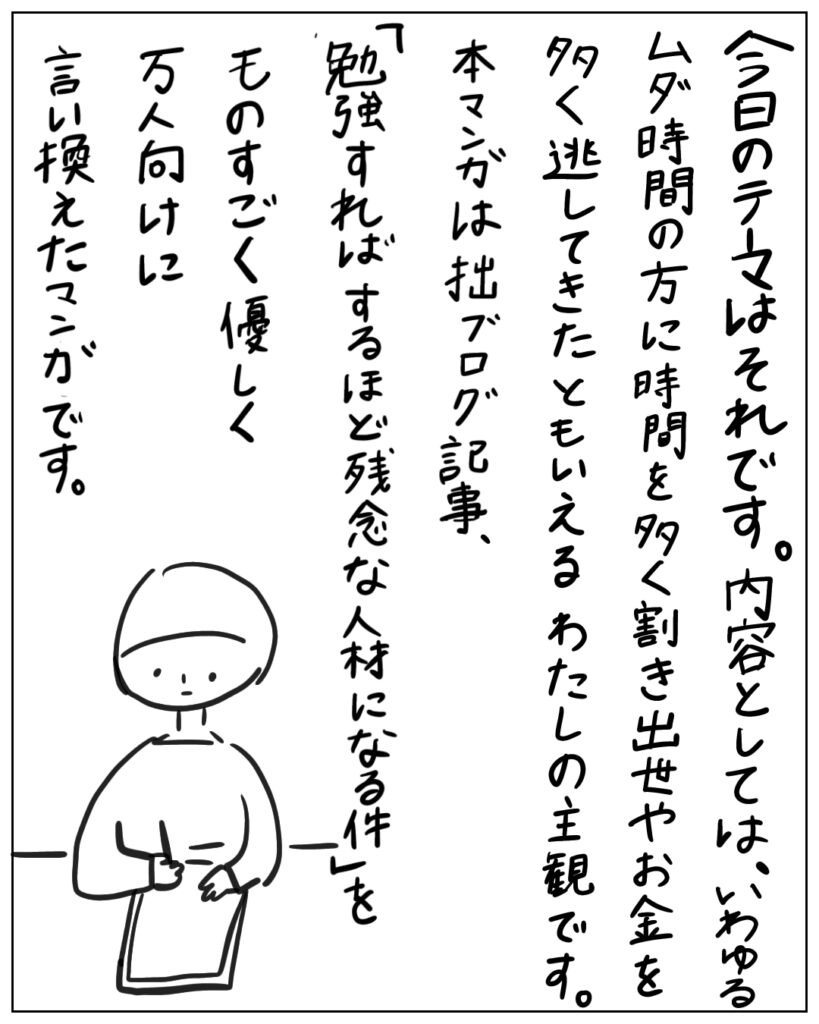 今日のテーマはそれです。内容としては、いわゆる
ムダ時間の方に時間を多く割き出世やお金を
多く逃してきたともいえるわたしの主観です。
本マンガは拙ブログ記事、
「勉強すればするほど残念な人材になる件」を
ものすごく優しく
万人向けに
言い換えたマンガです。